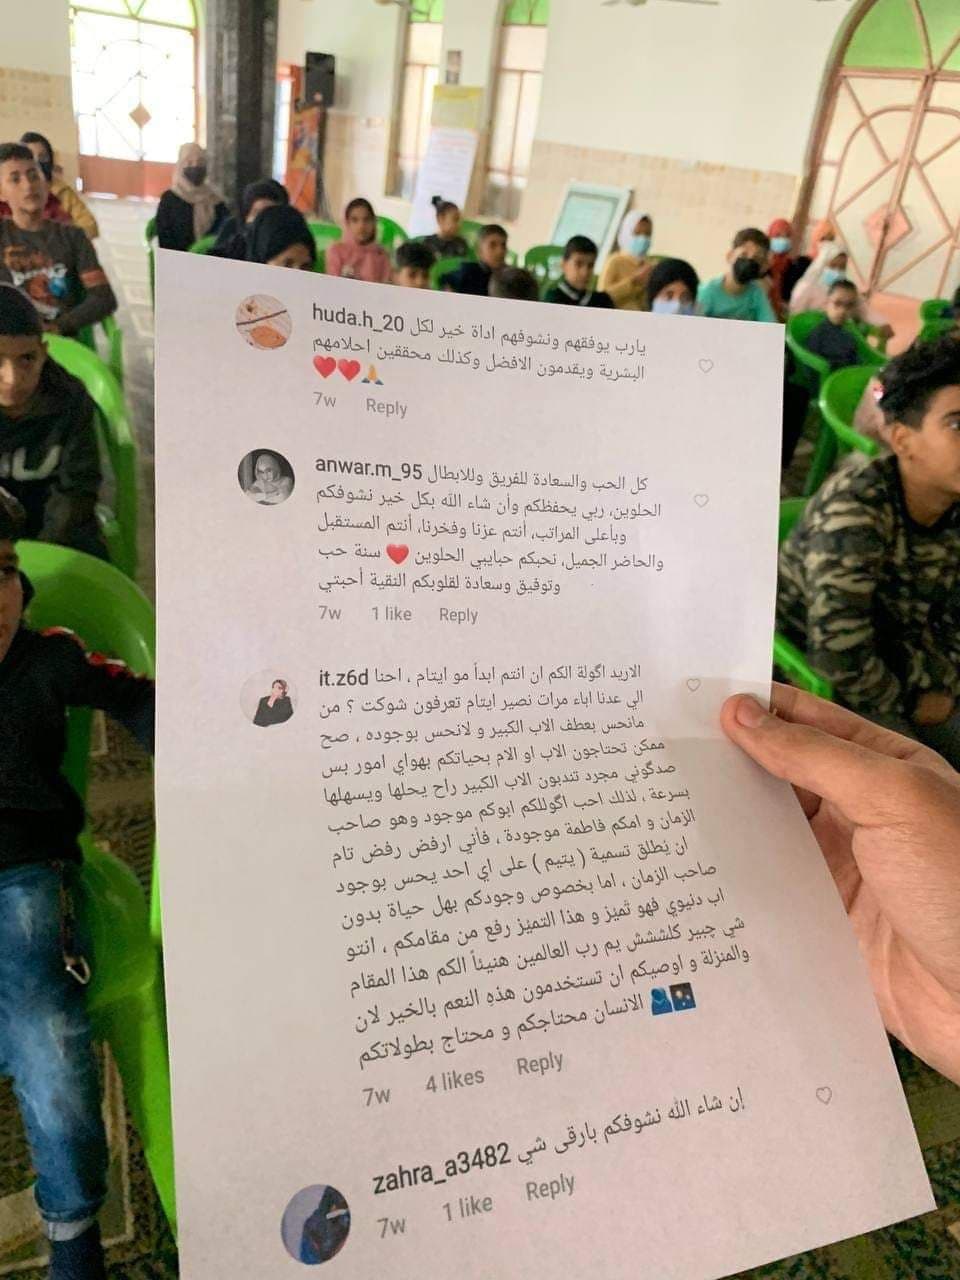 huda.h_20 يارب يوفقهم ونشوفهم اداة خير لكل
البشرية ويقدمون الافضل وكذلك محققين احلامهم
❤️❤️🙏
7w Reply
anwar.m_95 كل الحب والسعادة للفريق وللابطال
الحلوين، ربي يحفظكم وأن شاء الله بكل خير نشوفكم
وبأعلى المراتب، أنتم عزنا وفخرنا، أنتم المستقبل
والحاضر الجميل، نحبكم حبايبي الحلوين ❤️ سنة حب
وتوفيق وسعادة لقلوبكم النقية أحبتي
7w 1 like Reply
it.z6d الاريد اگولة الكم ان انتم ابدأ مو ايتام ، احنا
الي عدنا اباء مرات نصير ايتام تعرفون شوكت ؟ من
مانحس بعطف الاب الكبير و لانحس بوجوده ، صح
ممكن تحتاجون الاب او الام بحياتكم بهواي امور بس
صدگوني مجرد تندبون الاب الكبير راح يحلها ويسهلها
بسرعة ، لذلك احب اگوللكم ابوكم موجود وهو صاحب
الزمان و امكم فاطمة موجودة ، فأني ارفض رفض تام
ان يُطلق تسمية ( يتيم ) على اي احد يحس بوجود
صاحب الزمان ، اما بخصوص وجودكم بهل حياة بدون
اب دنيوي فهو تَميُز و هذا التميُز رفع من مقامكم ، انتو
شي چبير كلشششش يم رب العالمين هنيئاً الكم هذا المقام
والمنزلة و اوصيكم ان تستخدمون هذه النعم بالخير لان
الانسان محتاجكم و محتاج بطولاتكم
7w 4 likes Reply
zahra_a3482 إن شاء الله نشوفكم بارقى شي
7w 1 like Reply